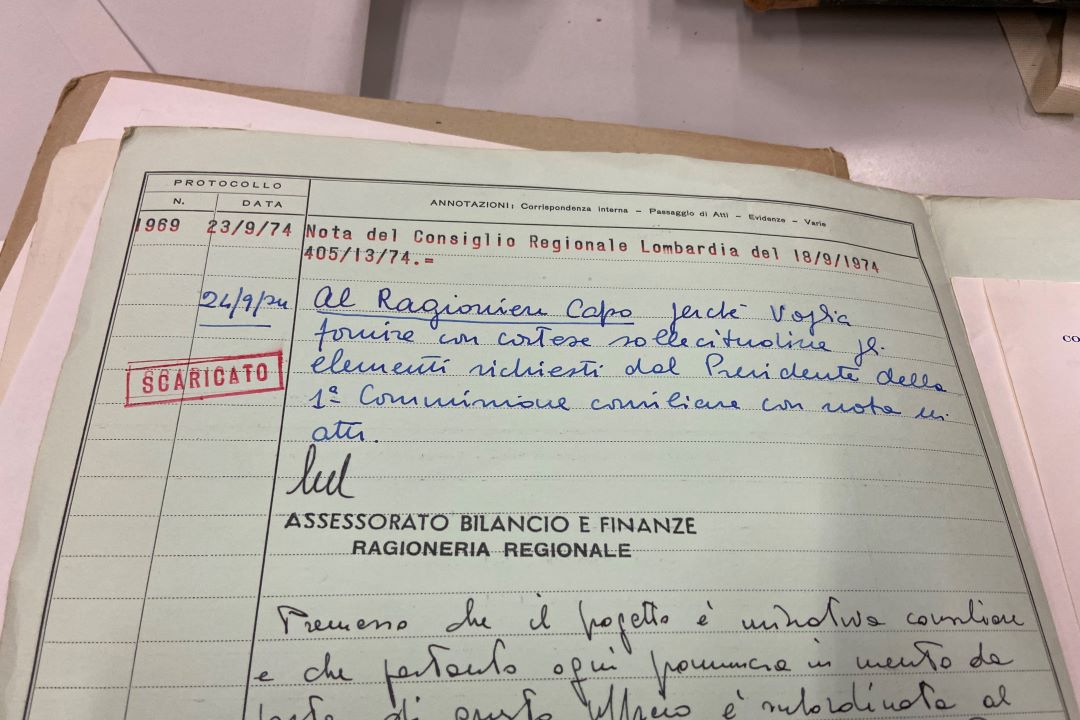 PROTOCOLLO
N. DATA
ANNOTAZIONI: Corrispondenza interna – Passaggio di Atti – Evidenze – Varie
1969 23/9/74 Nota del Consiglio Regionale Lombardia del 18/9/1974
405/13/74.=
24/9/74 Al Ragioniere Capo perché voglia
fornire con cortese sollecitudine gli
elementi richiesti dal Presidente della
1ª Commissione consiliare con nota in
atti.
SCARICATO
ASSESSORATO BILANCIO E FINANZE
RAGIONERIA REGIONALE
Premesso che il progetto è iniziativa consiliare
e che pertanto ogni pronuncia in merito da
parte di questo Ufficio è subordinata al
co